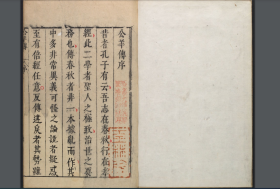 公羊傳序
昔者孔子有云吾志在春秋行在孝
經此二學者聖人之極致治世之要
務也傳春秋者非一本據亂而作其
中多非常異義可怪之論說者疑惑
至有倍經任意反傳違戾者其勢雖